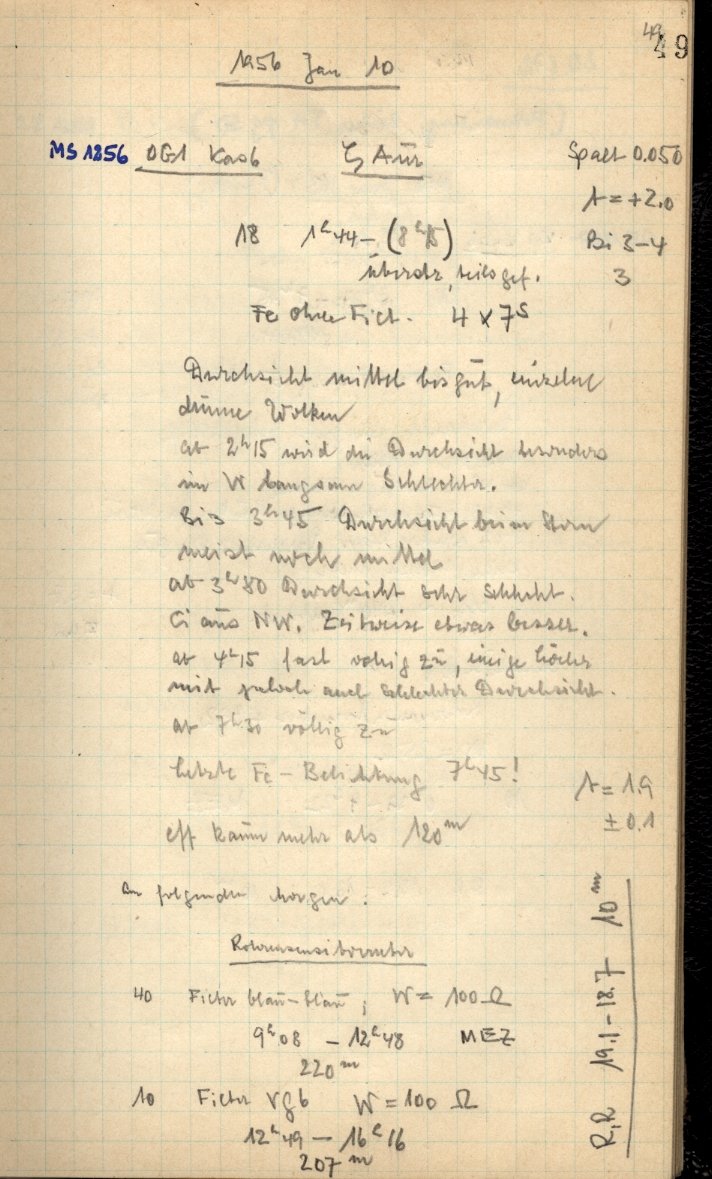 49
49
1956 Jan 10
MS 1256 OG1 Kas6 ζ Aur Spalt 0.050
A = +2.0
18 1ʰ44 – (8ʰ15) Bi 3–4
überdr, teils gef. 3
Fe ohne Filt. 4 × 7ˢ
Durchsicht mittel bis gut, einzelne
dünne Wolken
ab 2ʰ15 wird die Durchsicht besonders
im W langsam schlechter.
Bis 3ʰ45 Durchsicht beim Stern
meist noch mittel
ab 3ʰ50 Durchsicht sehr schlecht.
Ci aus NW. Zeitweise etwas besser.
ab 4ʰ15 fast völlig zu, einige Löcher
mit jedoch auch schlechter Durchsicht.
ab 7ʰ30 völlig zu
letzte Fe-Belichtung 7ʰ45!
A = 1.9
± 0.1
eff kaum mehr als 120ᵐ
Am folgenden Morgen:
Röhrensensitometer
40 Filter blau-blau; W = 100 Ω
9ʰ08 – 12ʰ48 MEZ
220ᵐ
10 Filter VG6 W = 100 Ω
12ʰ49 – 16ʰ16
207ᵐ
R,R 19.1–18.7 10ᵐ